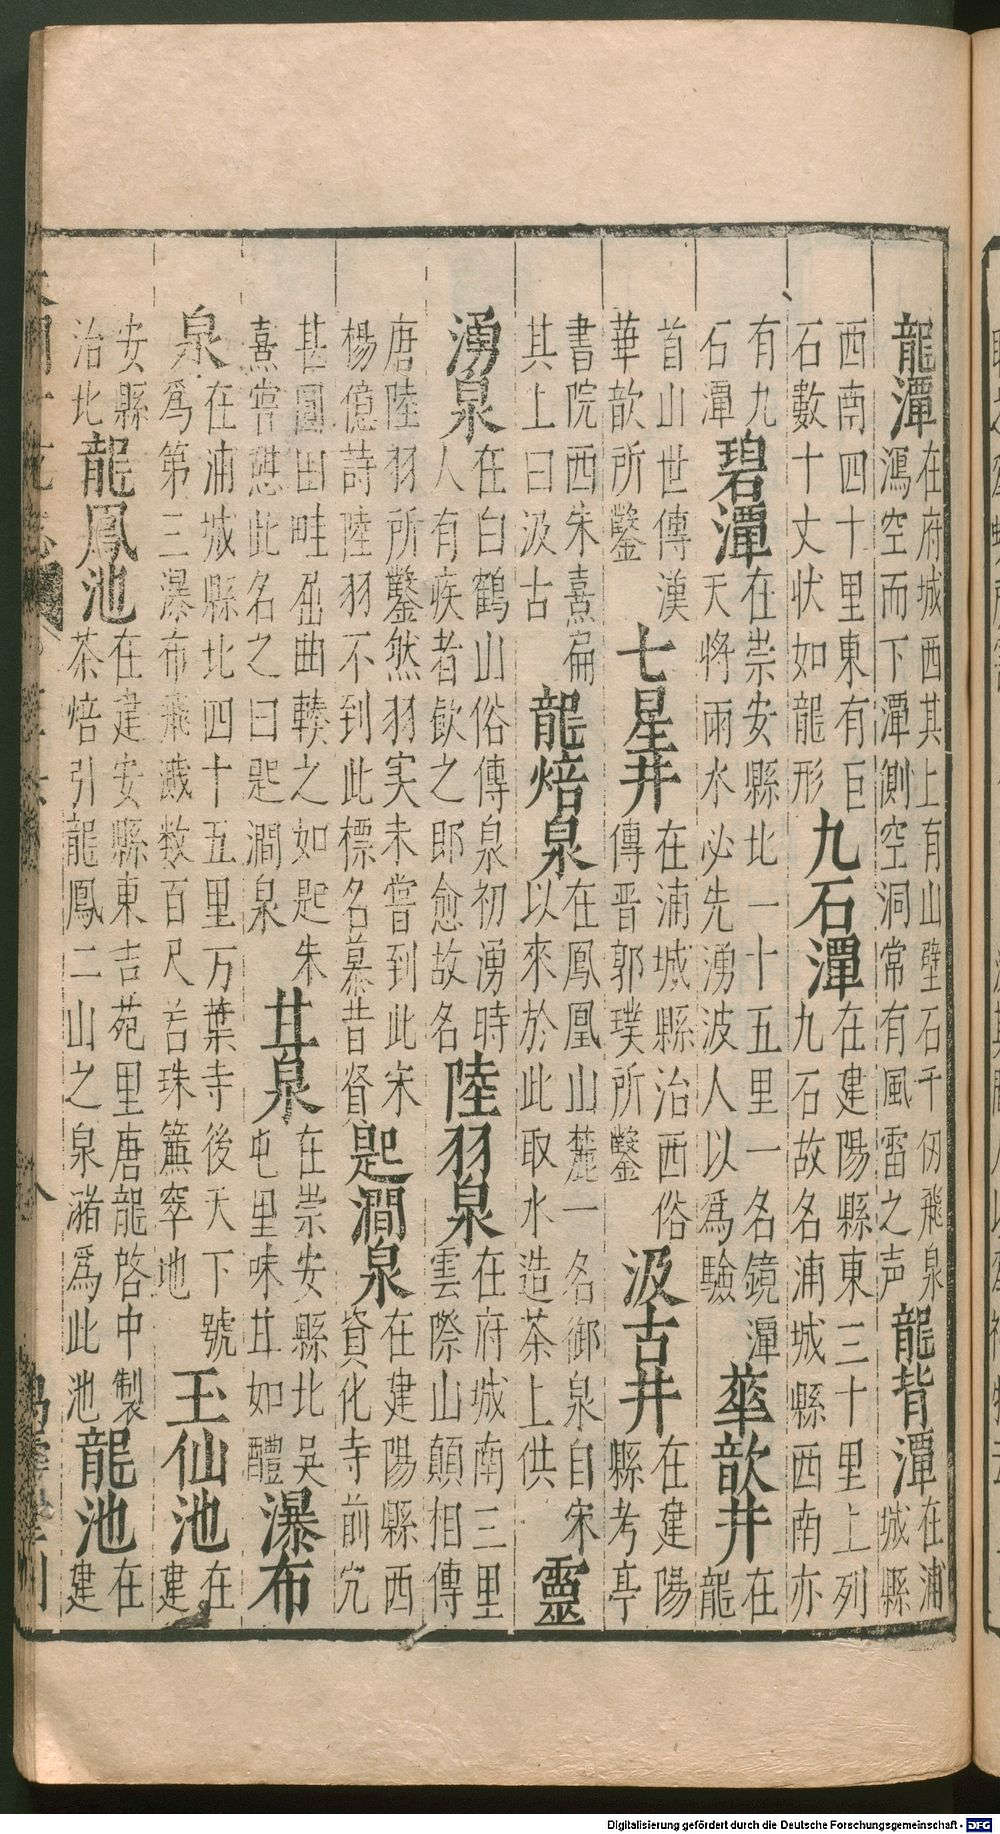 龍潭在府城西其上有山壁石千仭飛泉瀉空而下潭側空洞常有風雷之声龍背潭在浦城縣
西南四十里東有巨石數十丈状如龍形九石潭在建陽縣東三十里上列九石故名浦城縣西南亦
有九石潭碧潭在崇安縣北一十五里一名鏡潭天將雨水必先湧波人以爲驗華歆井在龍
首山世傳漢華歆所鑿七星井在浦城縣治西俗傳晋郭璞所鑿汲古井在建陽縣考亭
書院西朱熹扁其上曰汲古龍焙泉在鳳凰山麓一名御泉自宋以來於此取水造茶上供靈
湧泉在白鶴山俗傳泉初湧時人有疾者飲之即愈故名陸羽泉在府城南三里雲際山顛相傳
唐陸羽所鑿然羽实未嘗到此宋楊億詩陸羽不到此標名慕昔賢匙澗泉在建陽縣西資化寺前宂
甚圓田畦曲轃之如匙朱熹嘗憇此名之曰匙澗泉甘泉在崇安縣北吳屯里味甘如醴瀑布
泉在浦城縣北四十五里万葉寺後天下號爲第三瀑布飛濺数百尺若珠簾窣地玉仙池在建
安縣治北龍鳳池在建安縣東吉苑里唐龍啓中製茶焙引龍鳳二山之泉瀦爲此池龍池在建
Digitalisierung gefördert durch die Deutsche Forschungsgemeinschaft - DFG